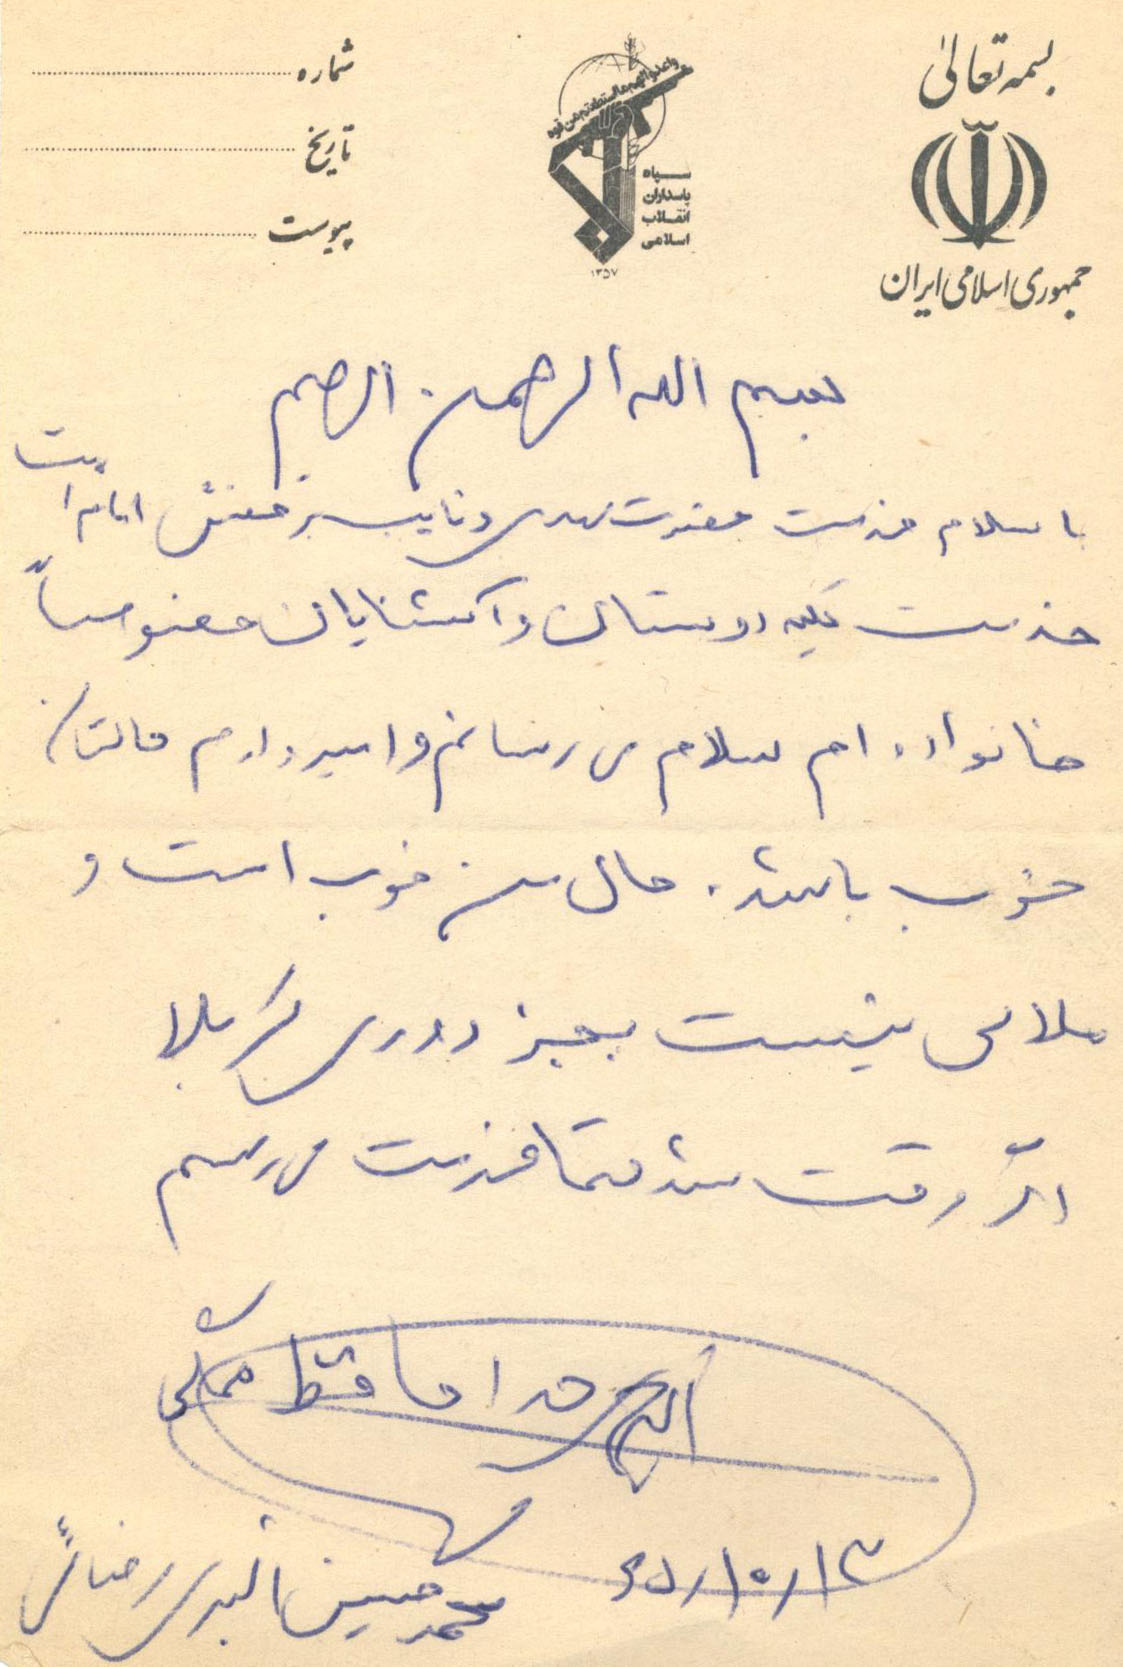 بسمه تعالیٰ
جمهوری اسلامی ایران
واعدوا لهم ما استطعتم من قوه
سپاه
پاسداران
انقلاب
اسلامی
۱۳۵۷
شماره
تاریخ
پیوست
بسم الله الرحمن الرحیم
با سلام خدمت حضرت مهدی و نایب بر حقش امام امت
خدمت کلیه دوستان و آشنایان خصوصاً
خانواده ام سلام می رسانم و امید وارم حالتان
خوب باشد. حال من خوب است و
ملالی نیست بجز دوری کربلا
اگر وقت شد حتما خدمت می رسم
خدا حافظ همگی
۶۵/۱۰/۱۳
محمد حسین اکبری رضائی